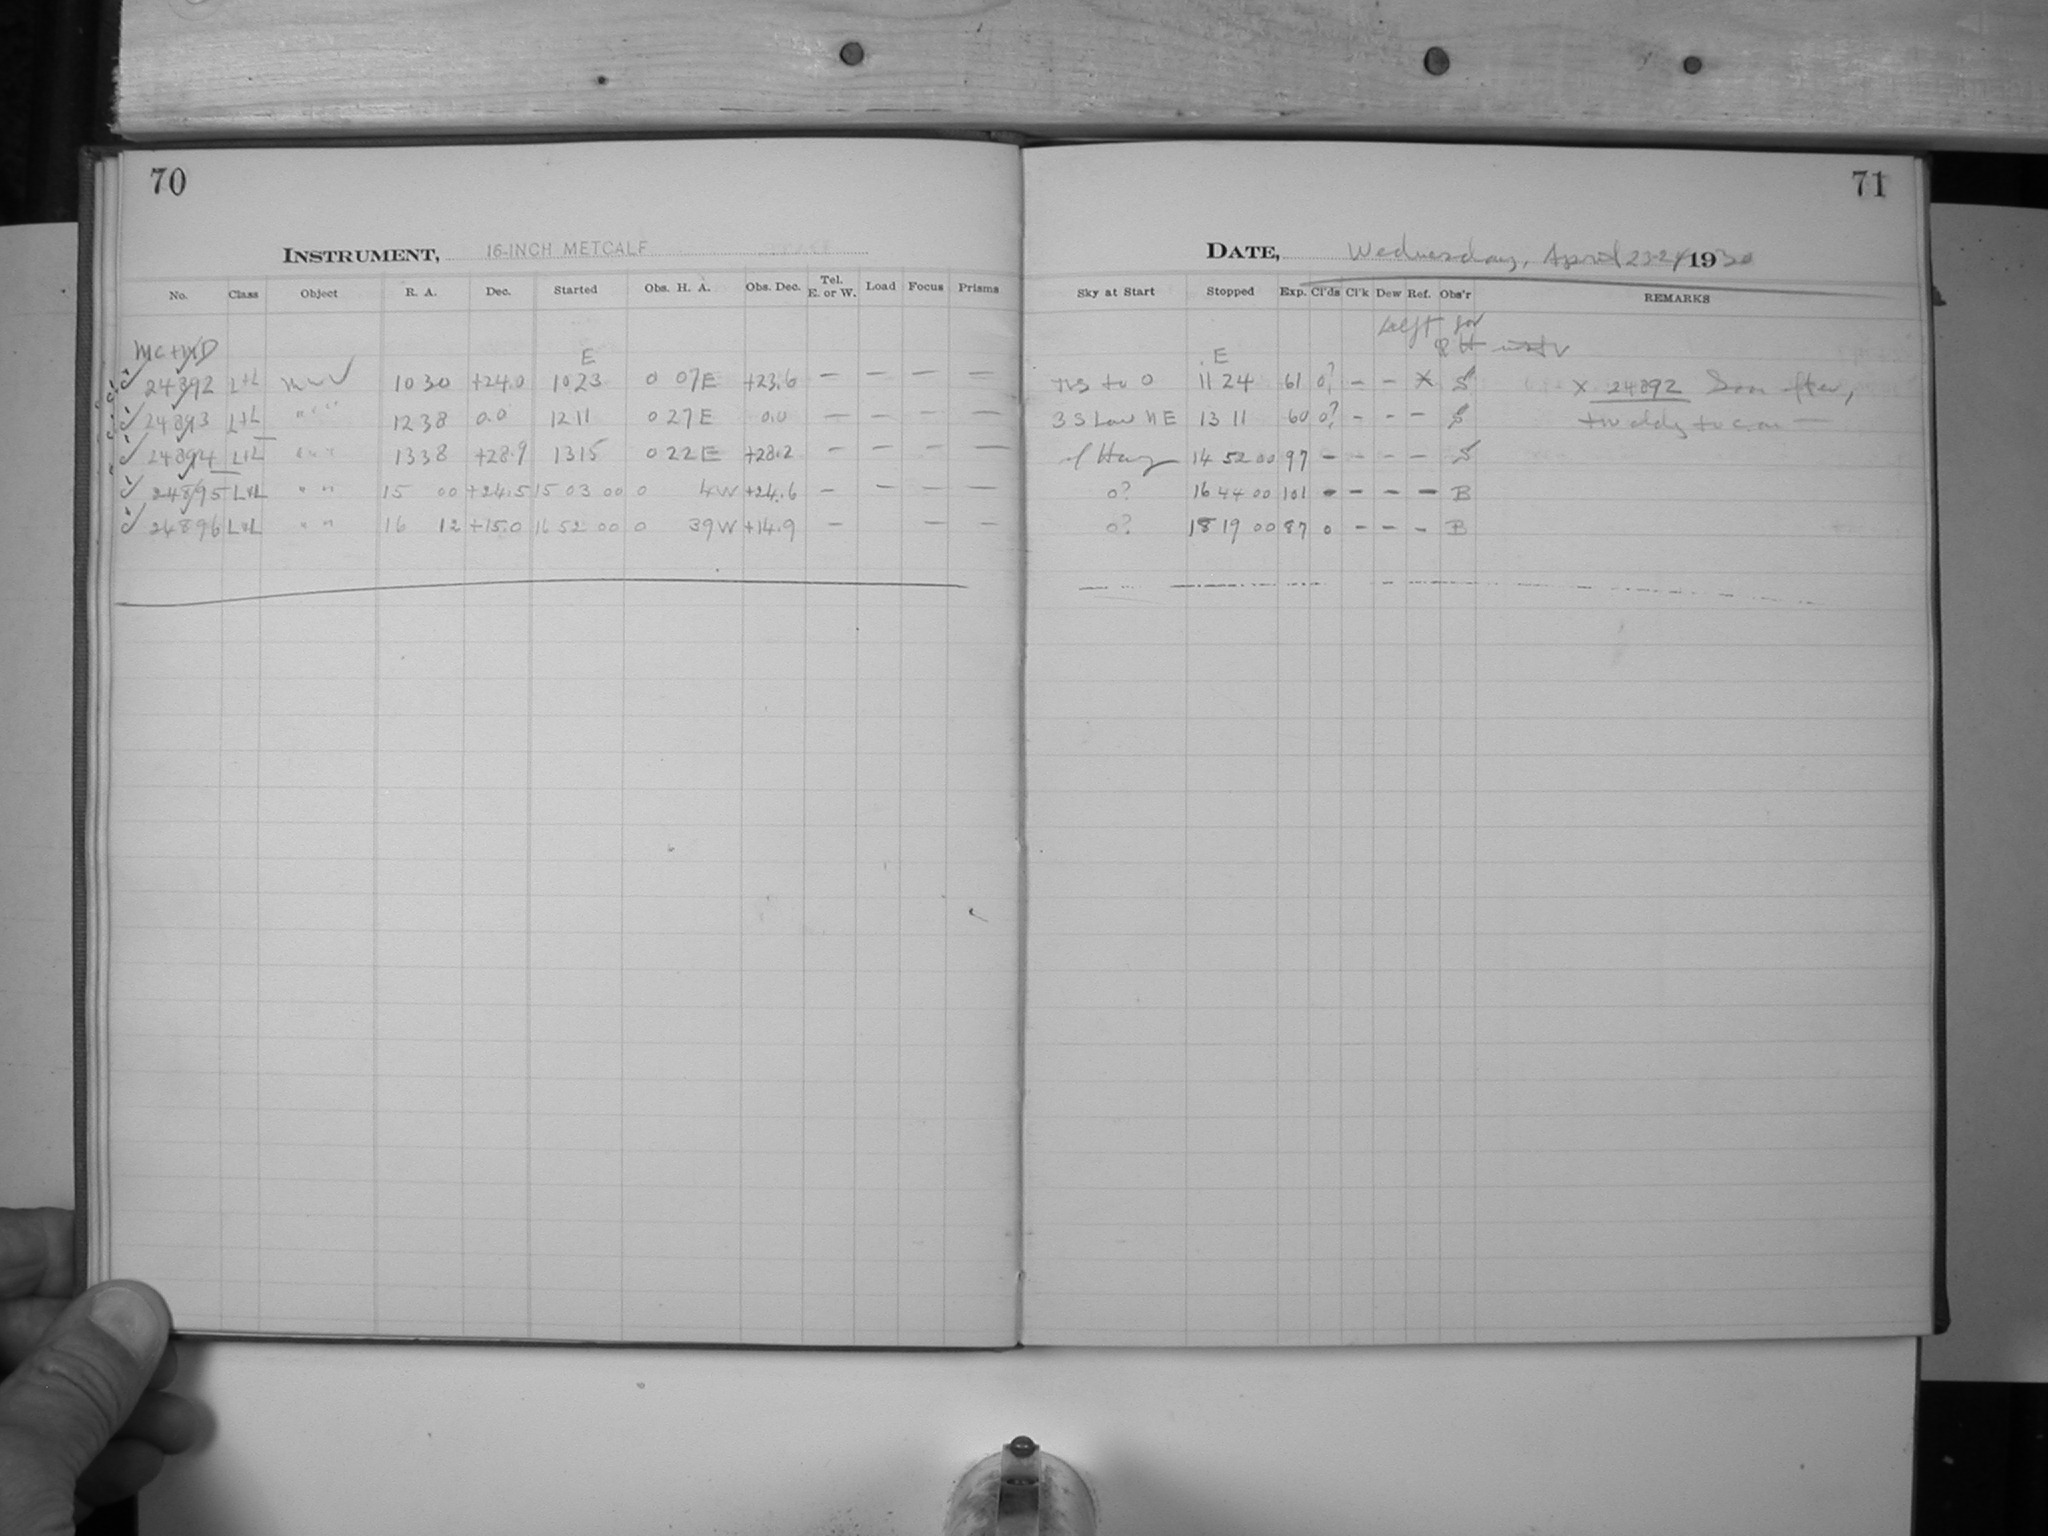 70
INSTRUMENT, 16-INCH METCALF
No. Class Object R. A. Dec. Started Obs. H. A. Obs. Dec. Tel. E. or W. Load Focus Prisms
E
24892 L+L 10 30 +24.0 10 23 0 07E +23.6 — — — —
24893 L+L " " " 12 38 0.0 12 11 0 27E 0.0 — — — —
24894 L+L " " " 13 38 +28.9 13 15 0 22E +28.2 — — — —
24895 L+L " " 15 00 +24.5 15 03 00 0 4W +24.6 — — — —
24896 L+L " " 16 12 +15.0 16 52 00 0 39W +14.9 — — —
71
DATE, Wednesday, April 23-24 1930
Sky at Start Stopped Exp. Cl'ds Cl'k Dew Ref. Obs'r REMARKS
Left for
E
to 0 11 24 61 0? - - X S X 24892 Soon after,
3 S Low NE 13 11 60 0? - - - S
14 52 00 97 - - - - S
0? 16 44 00 101 - - - - B
0? 18 19 00 87 0 - - - B